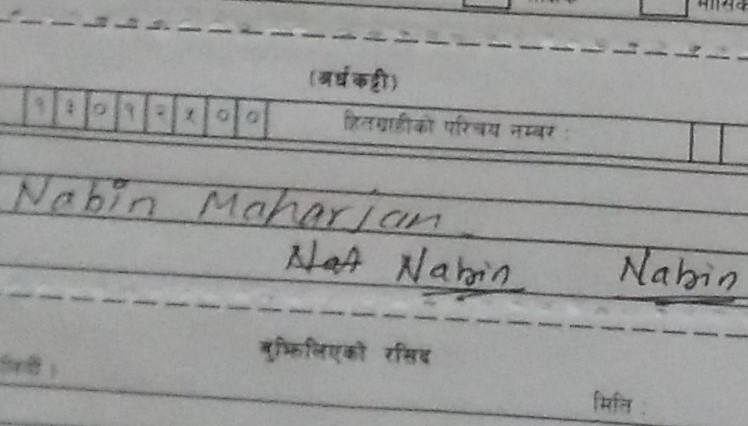 मासिक
(अर्धकट्टी)
१३०१२५०० हितग्राहीको परिचय नम्बर :
Nabin Maharjan
Nabin Nabin
बुझिलिएको रसिद
मिति :